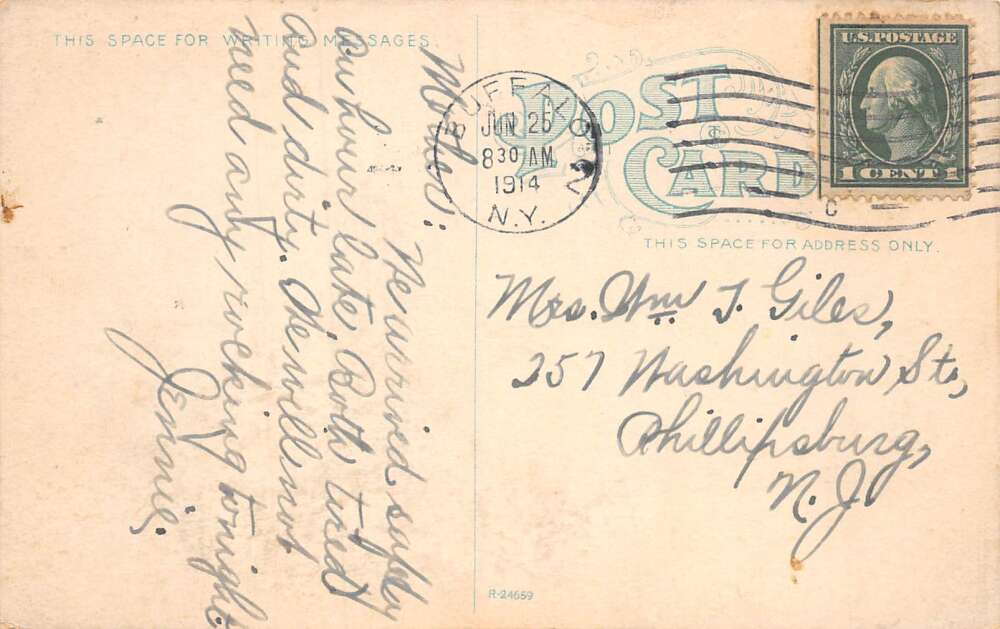 THIS SPACE FOR WRITING MESSAGES.
Mother:
We arrived safely
an hour late. Both tired
and dirty. He will not
need any rocking tonight.
Jennie.
BUFFALO 2
JUN 25
8 30 AM
1914
N.Y.
POST CARD
U.S. POSTAGE
1 CENT 1
C
THIS SPACE FOR ADDRESS ONLY.
Mrs. Wm T. Giles,
257 Washington St.,
Phillipsburg,
N. J.
R-24659